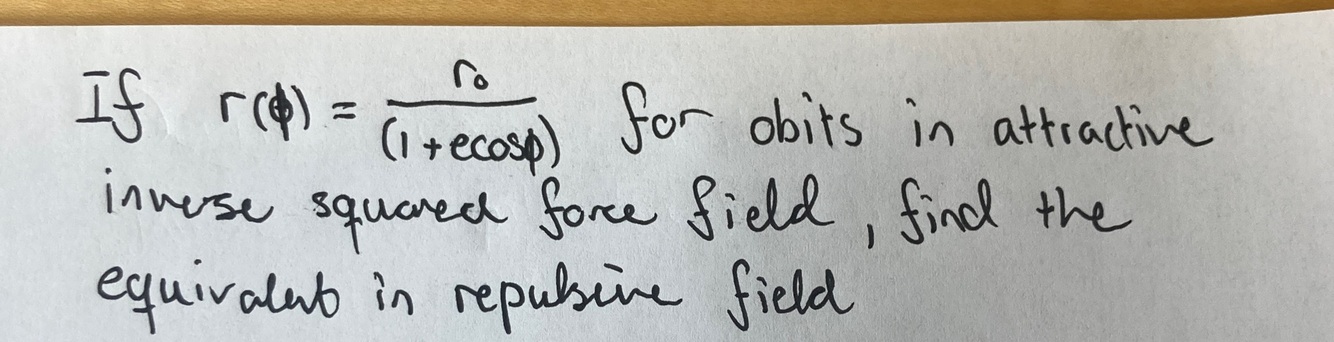 If r(ϕ) = r₀/(1+ecosϕ) for obits in attractive
inverse squared force field, find the
equivalent in repulsive field